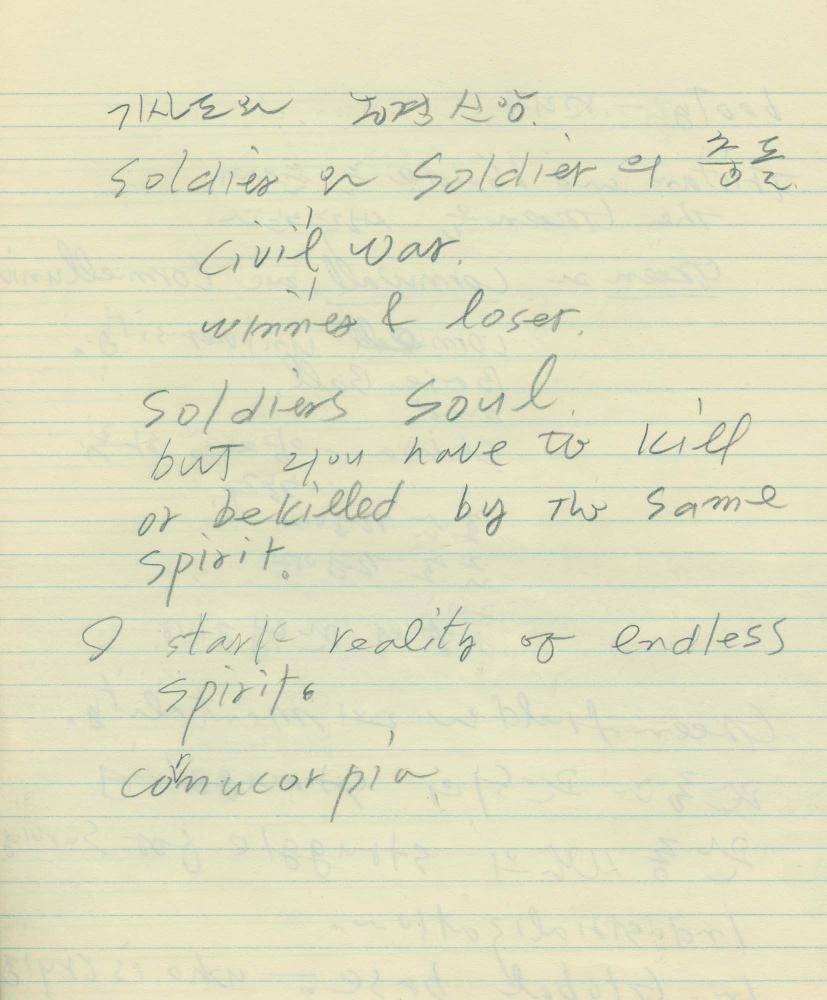 기사도와 농경 신앙.
Soldier와 Soldier의 충돌.
Civil war.
winner & loser.
Soldiers Soul.
but you have to kill
or be killed by the same
spirit.
stark reality of endless
spirit.
cornucorpia,